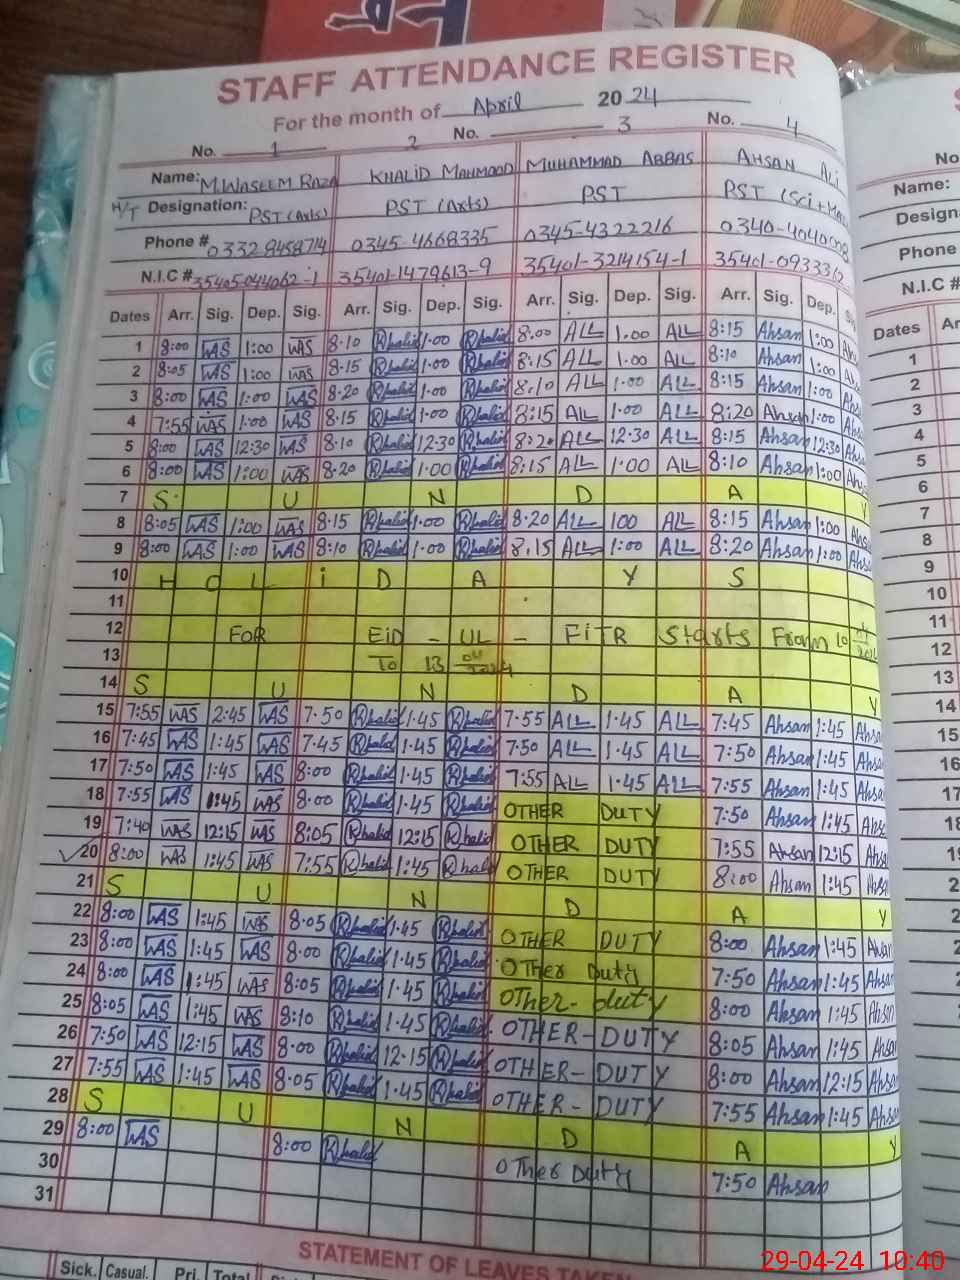 STAFF ATTENDANCE REGISTER
For the month of April 2024
No. 1 2 No. 3 No. 4
Name: M.WASEEM RAZA KHALID MAHMOOD MUHAMMAD ABBAS AHSAN ALi
H/T Designation: PST (Arts) PST (Arts) PST PST (Sci+
Phone # 0332 8458714 0345-4668335 0345-4322216 0340-4040008
N.I.C # 35405 044062-1 35401-1479613-9 35401-3214154-1 35401-093331
Dates Arr. Sig. Dep. Sig. Arr. Sig. Dep. Sig. Arr. Sig. Dep. Sig. Arr. Sig. Dep.
1 8:00 WAS 1:00 WAS 8-10 Khalid 1-00 Khalid 8-00 ALL 1.00 ALL 8:15 Ahsan 1:00
2 8:05 WAS 1:00 WAS 8-15 Khalid 1-00 Khalid 8:15 ALL 1.00 ALL 8:10 Ahsan 1:00
3 8:00 WAS 1:00 WAS 8-20 Khalid 1-00 Khalid 8.10 ALL 1.00 ALL 8:15 Ahsan 1:00
4 7:55 WAS 1:00 WAS 8.15 Khalid 1.00 Khalid 8:15 ALL 1.00 ALL 8:20 Ahsan 1:00
5 8:00 WAS 12:30 WAS 8-10 Khalid 12-30 Khalid 8:20 ALL 12.30 ALL 8:15 Ahsan 12:30
6 8:00 WAS 1:00 WAS 8-20 Khalid 1.00 Khalid 8:15 ALL 1.00 ALL 8:10 Ahsan 1:00
7 S U N D A Y
8 8:05 WAS 1:00 WAS 8-15 Khalid 1-00 Khalid 8-20 ALL 100 ALL 8:15 Ahsan 1:00
9 8:00 WAS 1:00 WAS 8:10 Khalid 1-00 Khalid 8.15 ALL 1:00 ALL 8:20 Ahsan 1:00
10 H O L i D A Y S
11
12 FOR EiD - UL - FiTR Starts From 10
13 To 13
14 S U N D A Y
15 7:55 WAS 2:45 WAS 7-50 Khalid 1-45 Khalid 7-55 ALL 1.45 ALL 7:45 Ahsan 1:45
16 7:45 WAS 1:45 WAS 7-45 Khalid 1-45 Khalid 7:50 ALL 1.45 ALL 7:50 Ahsan 1:45
17 7:50 WAS 1:45 WAS 8:00 Khalid 1-45 Khalid 7:55 ALL 1:45 ALL 7:55 Ahsan 1:45
18 7:55 WAS 1:45 WAS 8-00 Khalid 1-45 Khalid OTHER DUTY 7:50 Ahsan 1:45
19 7:40 WAS 12:15 WAS 8:05 Khalid 12:15 Khalid OTHER DUTY 7:55 Ahsan 12:15
20 8:00 WAS 1:45 WAS 7-55 Khalid 1-45 Khalid OTHER DUTY 8:00 Ahsan 1:45
21 S U N D A Y
22 8:00 WAS 1:45 WAS 8.05 Khalid 1-45 Khalid OTHER DUTY 8:00 Ahsan 1:45 Ahsan
23 8:00 WAS 1:45 WAS 8-00 Khalid 1.45 Khalid OTher Duty 7:50 Ahsan 1:45
24 8:00 WAS 1:45 WAS 8:05 Khalid 1-45 Khalid OTher-duty 8:00 Ahsan 1:45
25 8:05 WAS 1:45 WAS 8:10 Khalid 1-45 Khalid OTHER-DUTY 8:05 Ahsan 1:45
26 7:50 WAS 12:15 WAS 8-00 Khalid 12-15 Khalid OTHER-DUTY 8:00 Ahsan 12:15
27 7:55 WAS 1:45 WAS 8.05 Khalid 1-45 Khalid OTHER-DUTY 7:55 Ahsan 1:45
28 S U N D A Y
29 8:00 WAS 8:00 Khalid OTher Duty 7:50 Ahsan
30
31
STATEMENT OF LEAVES TAKEN
Sick. Casual. Pri. Total
No
Name:
Design
Phone
N.I.C #
Dates
1
2
3
4
5
6
7
8
9
10
11
12
13
14
15
16
17
29-04-24 10:40